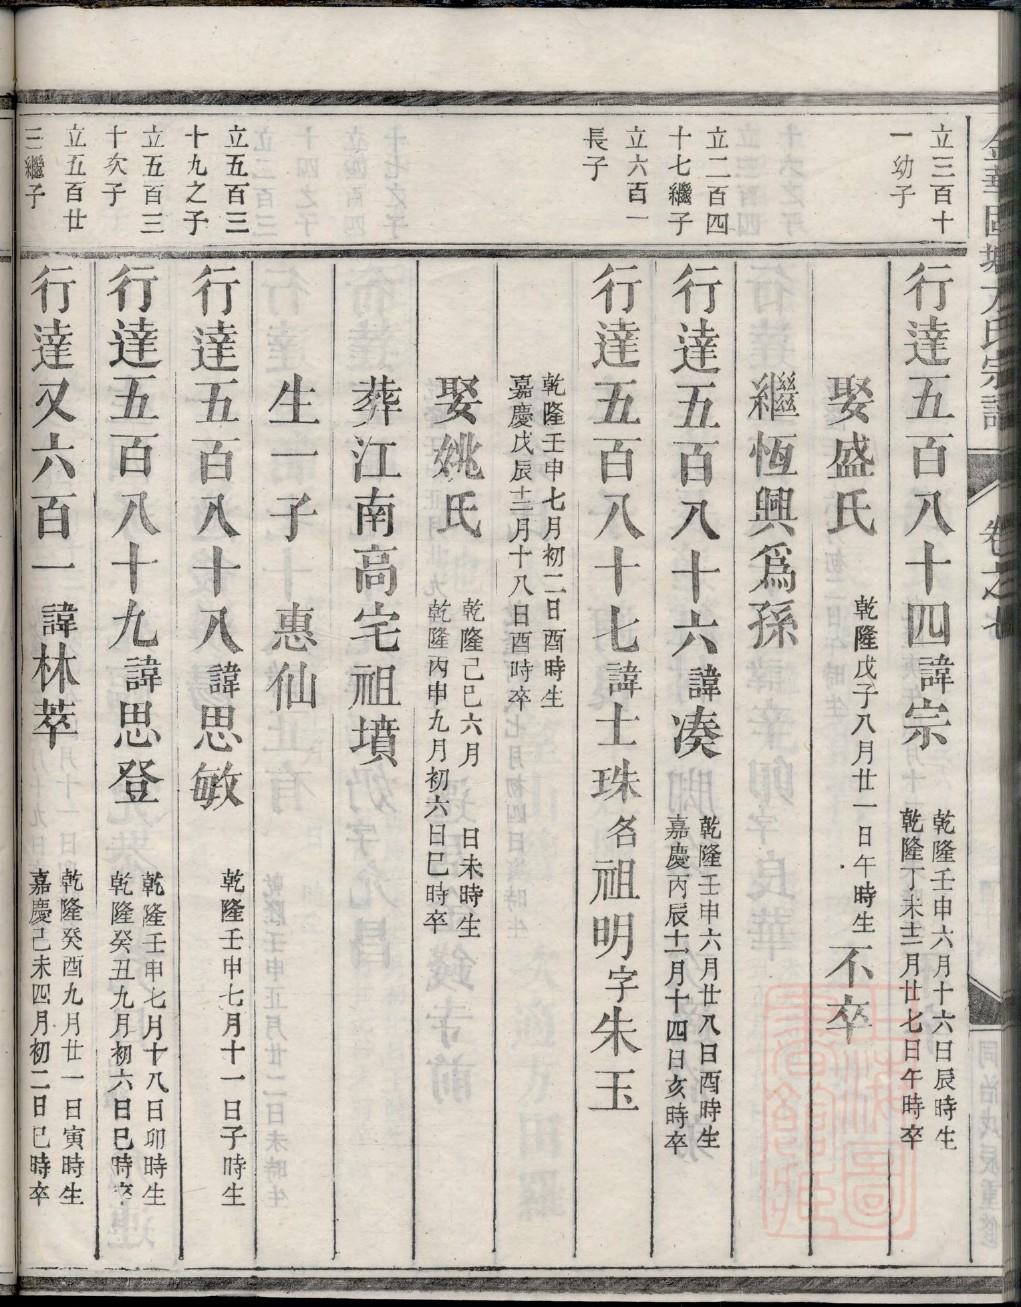 立三百十
一幼子
行達五百八十四諱宗
乾隆壬申六月十六日辰時生
乾隆丁未十二月廿七日午時卒
娶盛氏
乾隆戊子八月廿一日午時生
不卒
繼恆興爲孫
立二百四
十七繼子
行達五百八十六諱凑
乾隆壬申六月廿八日酉時生
嘉慶丙辰十一月十四日亥時卒
立六百一
長子
行達五百八十七諱士珠名祖明字朱玉
乾隆壬申七月初二日酉時生
嘉慶戊辰十二月十八日酉時卒
娶姚氏
乾隆己巳六月 日未時生
乾隆丙申九月初六日巳時卒
葬江南高宅祖墳
生一子 惠仙
立五百三
十九之子
行達五百八十八諱思敏
乾隆壬申七月十一日子時生
立五百三
十次子
行達五百八十九諱思登
乾隆壬申七月十八日卯時生
乾隆癸丑九月初六日巳時卒
立五百廿
三繼子
行達又六百一諱林萃
乾隆癸酉九月廿一日寅時生
嘉慶己未四月初二日巳時卒